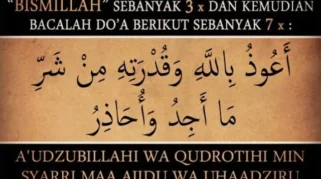 "BISMILLAH" SEBANYAK 3 x DAN KEMUDIAN
BACALAH DO'A BERIKUT SEBANYAK 7 x :
أَعُوذُ بِاللَّهِ وَقُدْرَتِهِ مِنْ شَرِّ
مَا أَجِدُ وَأُحَاذِرُ
A'UDZUBILLAHI WA QUDROTIHI MIN
SYARRI MAA AJIDU WA UHAADZIRU